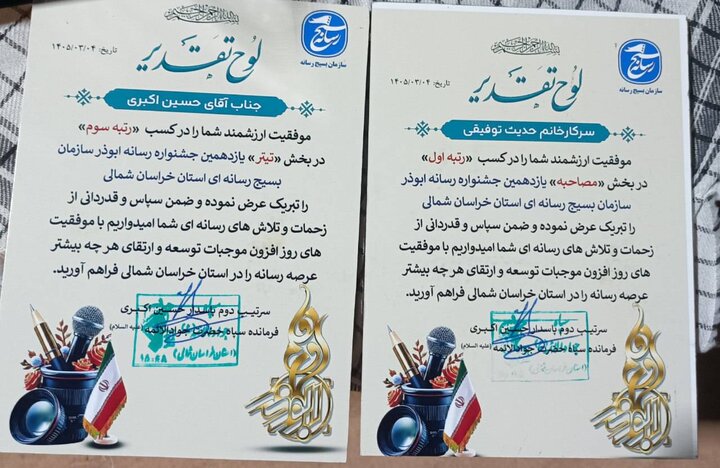 رسانه
سازمان بسیج رسانه
تاریخ: ۱۴۰۵/۰۳/۰۴
لوح تقدیر
جناب آقای حسین اکبری
موفقیت ارزشمند شما را در کسب «رتبه سوم»
در بخش «تیتر» یازدهمین جشنواره رسانه ابوذر سازمان
بسیج رسانه ای استان خراسان شمالی
را تبریک عرض نموده و ضمن سپاس و قدردانی از
زحمات و تلاش های رسانه ای شما امیدواریم با موفقیت
های روز افزون موجبات توسعه و ارتقای هر چه بیشتر
عرصه رسانه را در استان خراسان شمالی فراهم آورید.
سرتیپ دوم پاسدار حسین اکبری
فرمانده سپاه حضرت جوادالائمه (علیه السلام)
رسانه
سازمان بسیج رسانه
تاریخ: ۱۴۰۵/۰۳/۰۴
لوح تقدیر
سرکارخانم حدیث توفیقی
موفقیت ارزشمند شما را در کسب «رتبه اول»
در بخش «مصاحبه» یازدهمین جشنواره رسانه ابوذر
سازمان بسیج رسانه ای استان خراسان شمالی
را تبریک عرض نموده و ضمن سپاس و قدردانی از
زحمات و تلاش های رسانه ای شما امیدواریم با موفقیت
های روز افزون موجبات توسعه و ارتقای هر چه بیشتر
عرصه رسانه را در استان خراسان شمالی فراهم آورید.
سرتیپ دوم پاسدار حسین اکبری
فرمانده سپاه حضرت جوادالائمه (علیه السلام)